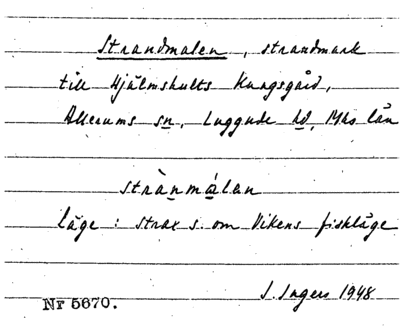 Strandmalen, strandmark
till Hjälmshults Kungsgård,
Allerums sn, Luggude hd, Mhs län
strànmálan
läge : strax s. om Vikens fiskläge
I. Ingers 1948
Nr 5670.